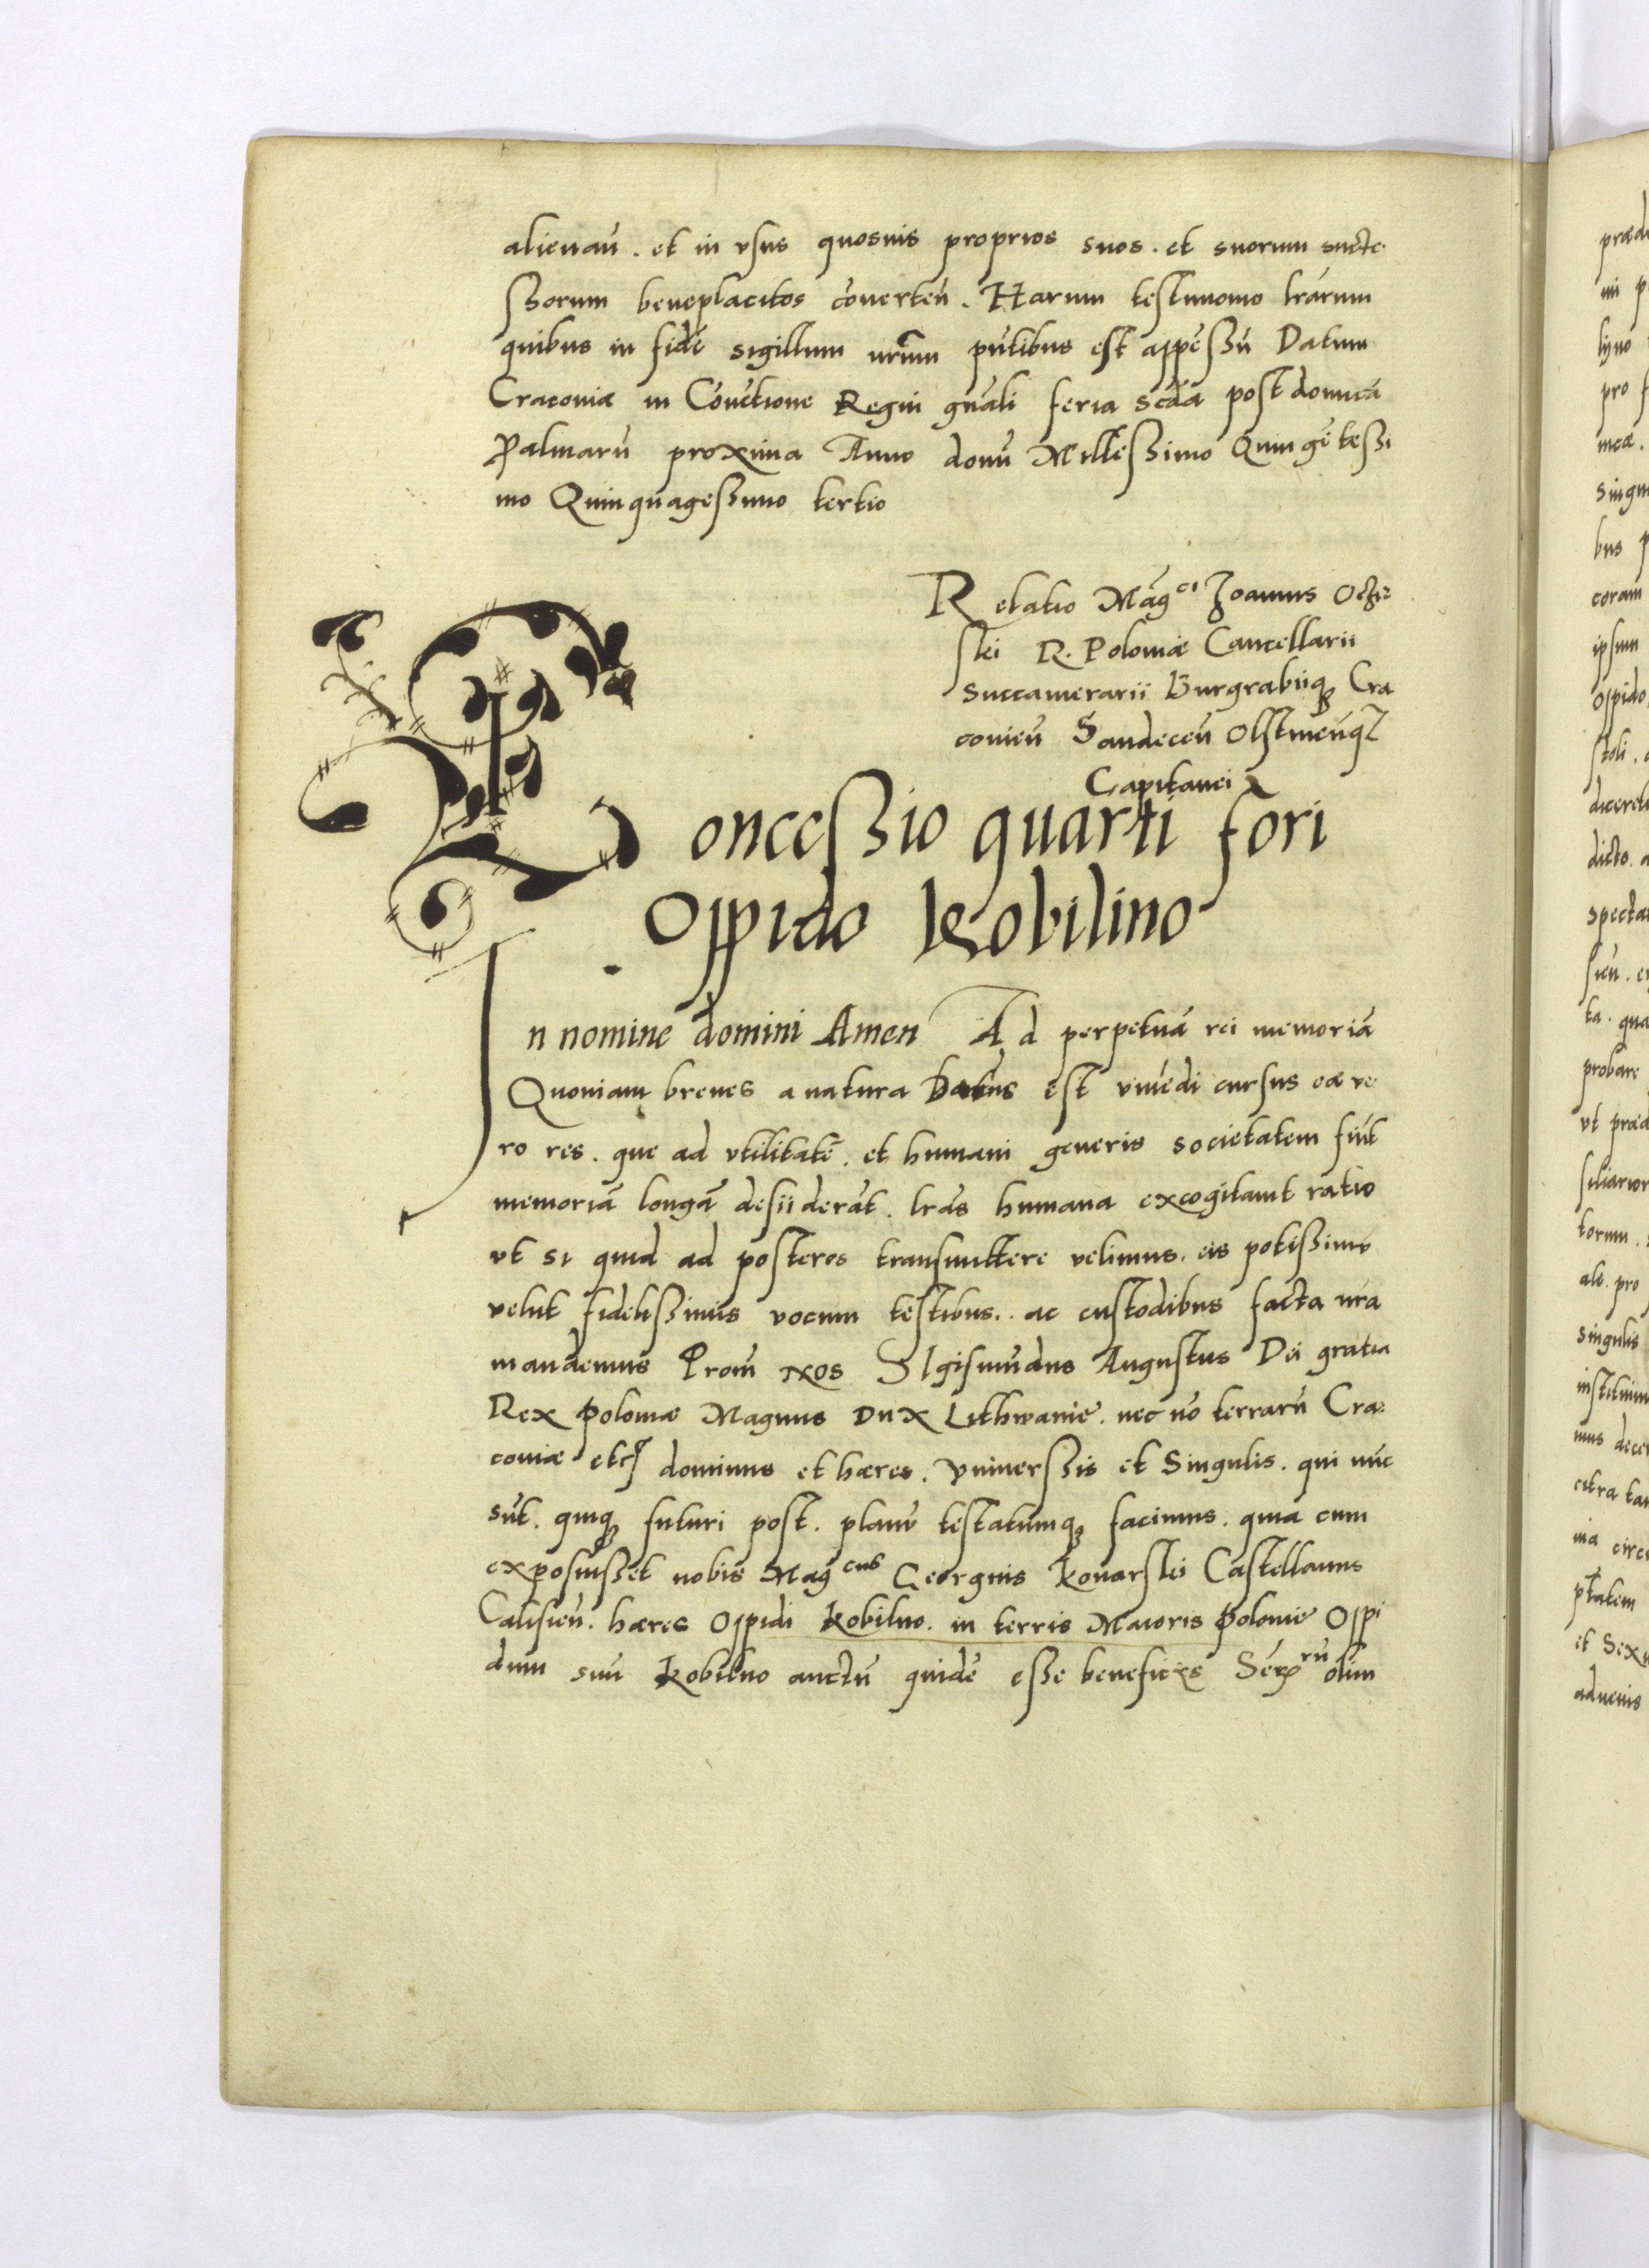 alienañ. et in vsus quosuis proprios suos. et suorum succe
ssorum beneplacitos cōuerteñ. Harum testimonio lrarum
quibus in fidē sigillum nrum pñtibus est appēssū Datum
Cracoviæ in Cōuētione Regni gñali feria scda post domīcā
Palmarū proxima Anno domī Millessimo Quingētessi
mo Quinquagessimo tertio
Relatio Magci Joannis Ocze
ski R. Poloniæ Cancellarii
Succamerarii Burgrabiiq3 Cra
covieñ Sandeceñ Olstineñq3
Capitanei
Concessio quarti fori
Oppido Kobilino
In nomine domini Amen Ad perpetuā rei memoriā
Quoniam breues a natura Datus est viuēdi cursus eæ ve
ro res. que ad vtilitatē. et humani generis societatem fiūt
memoriā longā desiiderāt. lras humana excogitauit ratio
vt si quid ad posteros transmittere velimus. eis potissimū
velut fidelissimis vocum testibus. ac custodibus facta nra
mandemus Proin nos SIgismūdus Augustus Dei gratia
Rex Poloniæ Magnus Dux Lithwanie. nec nō terrarū Cra
coviæ etc dominus et hæres. Vniuerssis et Singulis. qui nūc
sūt. quiq3 futuri post. planū testatumq3 facimus. quia cum
exposuisset nobis Magcus Georgius Konarski Castellanus
Calisieñ. hæres Oppidi Kobilno. in terris Maioris Polonie Oppi
dum suū Kobilno auctū quidē esse beneficiis Serrū olim
præd
mi p
lyno
pro f
mcæ.
singu
bus p
coram
ipsum
oppido
stoli.
diceret
dicto. a
specta
sieñ. e
ta. qua
probare
vt præd
siliarior
torum.
ale. pro
singulis
instituim
mus dece
citra ta
nia circ
ptatem
et Sex
aduenis